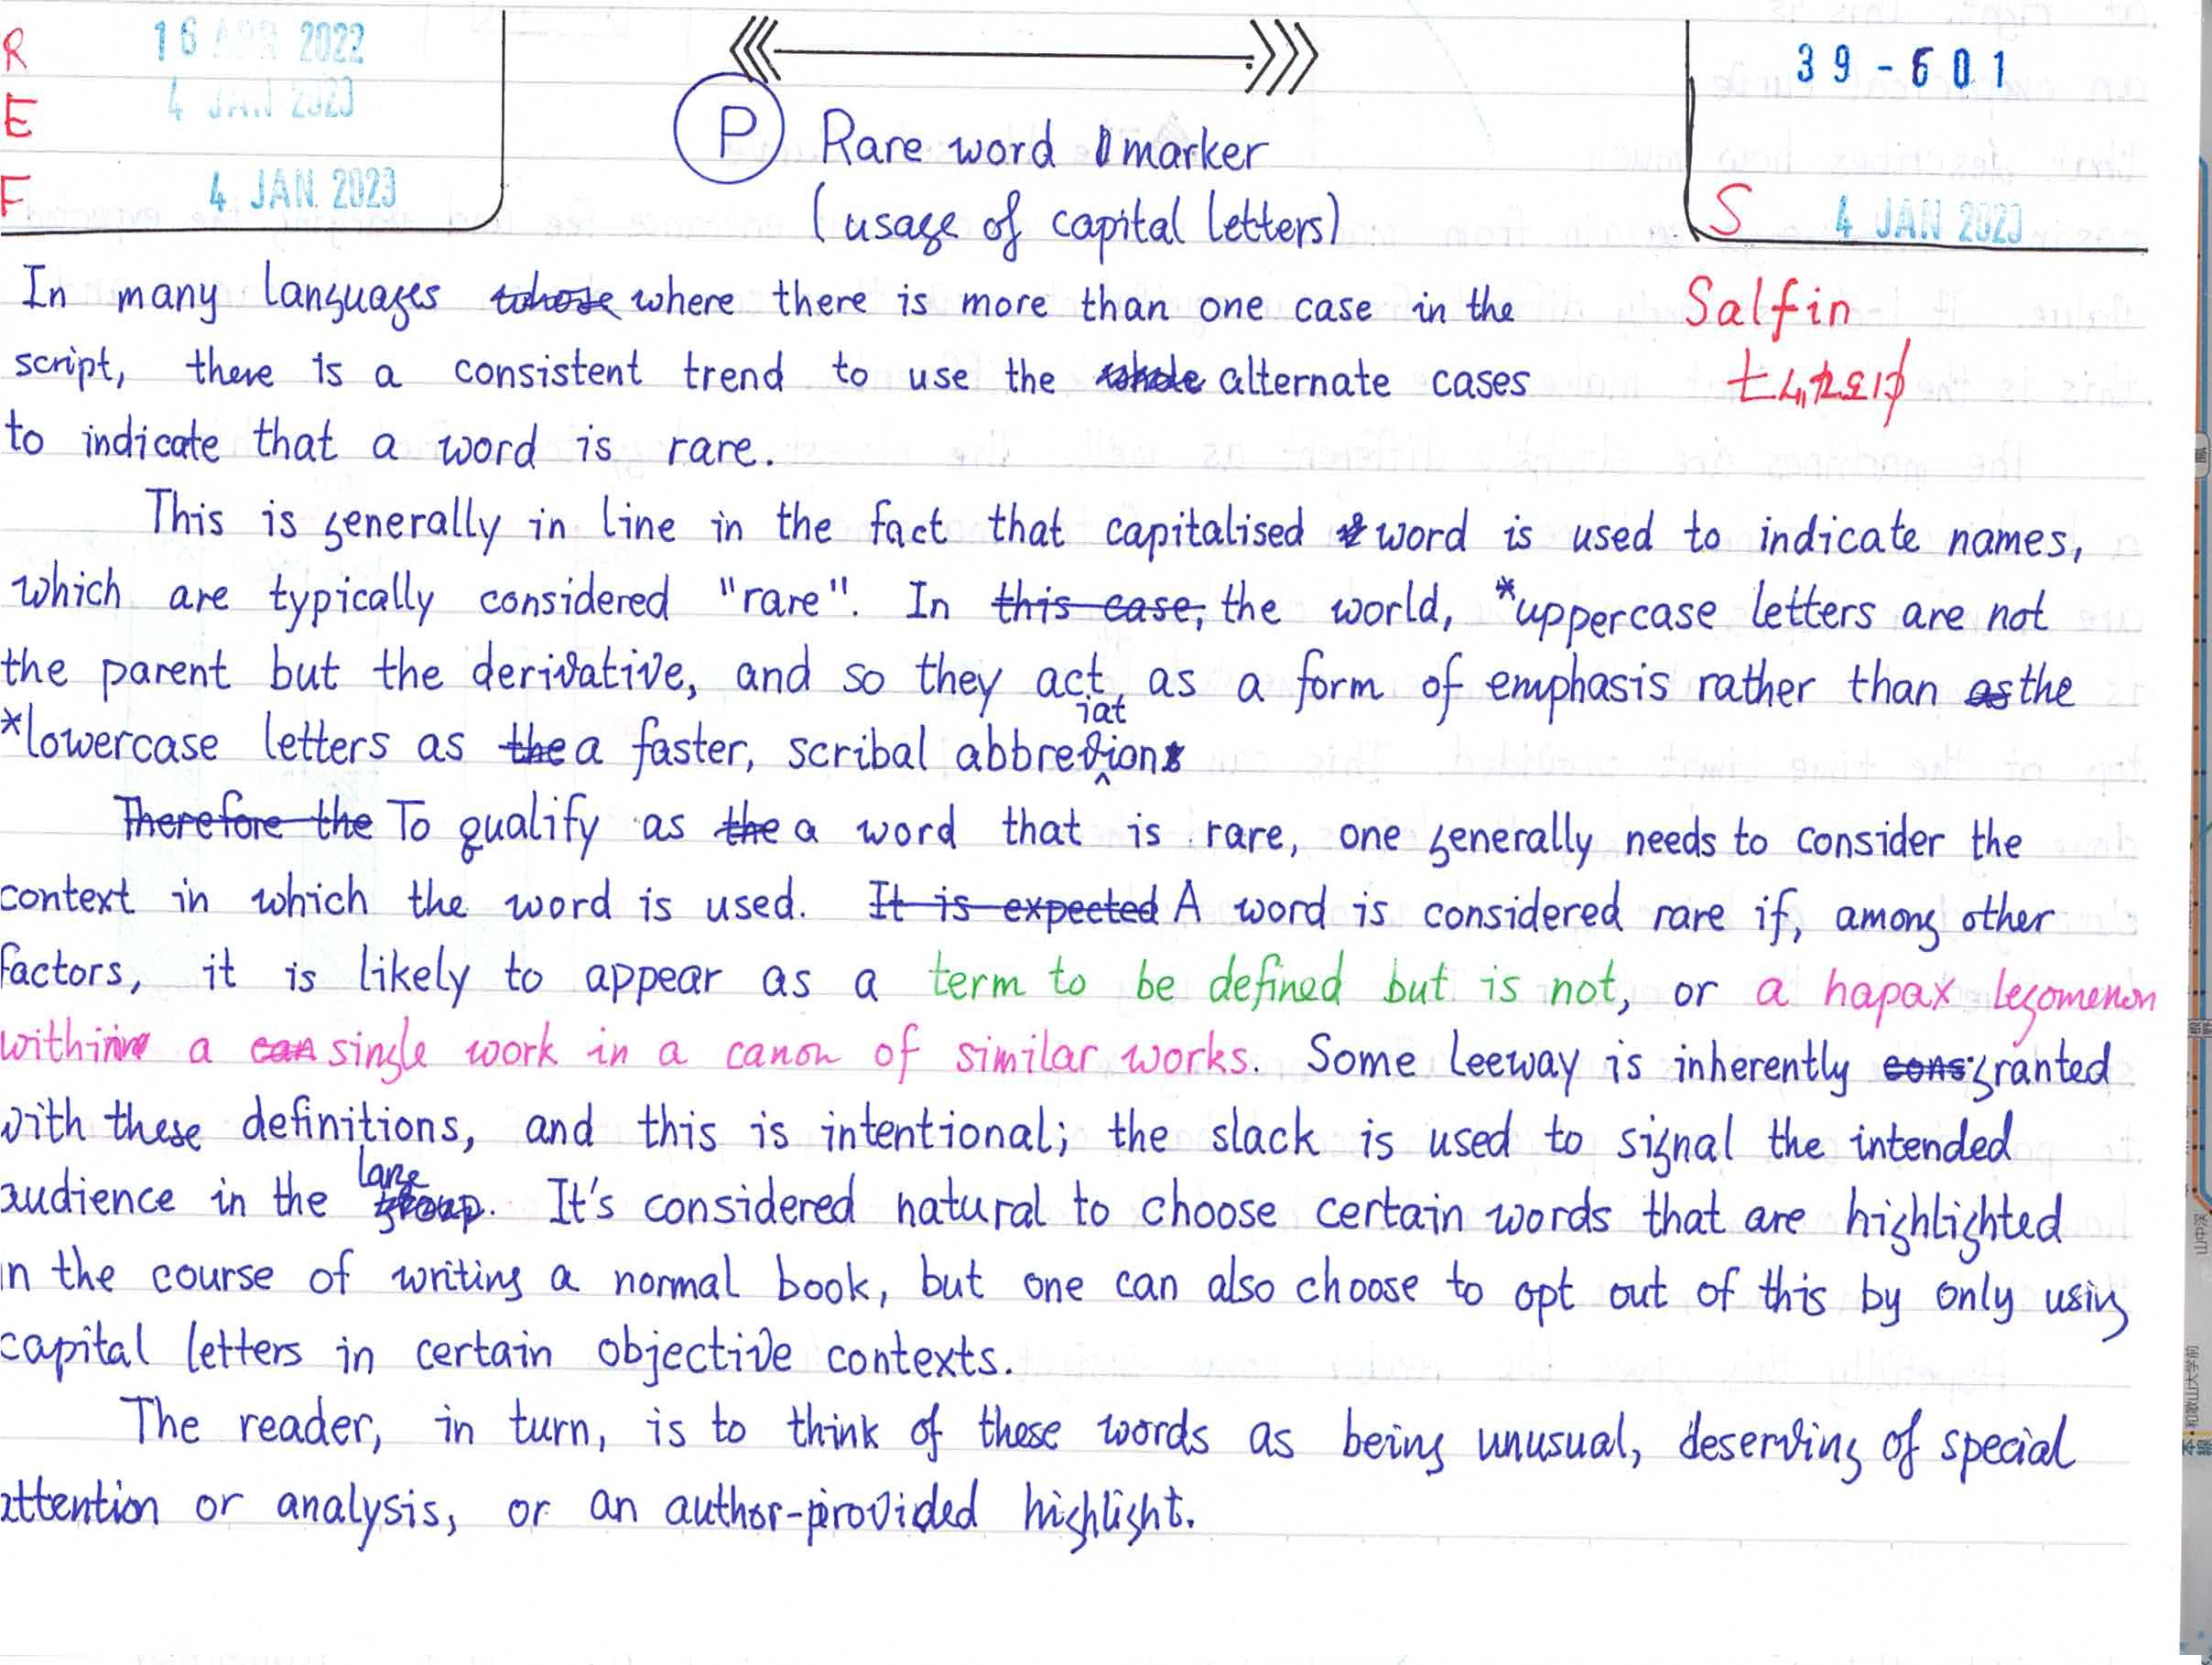 R 16 APR 2022
E 4 JAN 2023
F 4 JAN. 2023
39-601
S 4 JAN 2023
P Rare word marker
(usage of capital letters)
Salfin
In many languages whose where there is more than one case in the
script, there is a consistent trend to use the whole alternate cases
to indicate that a word is rare.
This is generally in line in the fact that capitalised word is used to indicate names,
which are typically considered "rare". In this case, the world, *uppercase letters are not
the parent but the derivative, and so they act as a form of emphasis rather than as the
*lowercase letters as the a faster, scribal abbreviation
Therefore the To qualify as the a word that is rare, one generally needs to consider the
context in which the word is used. It is expected A word is considered rare if, among other
factors, it is likely to appear as a term to be defined but is not, or a hapax legomenon
within a can single work in a canon of similar works. Some leeway is inherently cons granted
with these definitions, and this is intentional; the slack is used to signal the intended
audience in the group. It's considered natural to choose certain words that are highlighted
in the course of writing a normal book, but one can also choose to opt out of this by only using
capital letters in certain objective contexts.
The reader, in turn, is to think of these words as being unusual, deserving of special
attention or analysis, or an author-provided highlight.